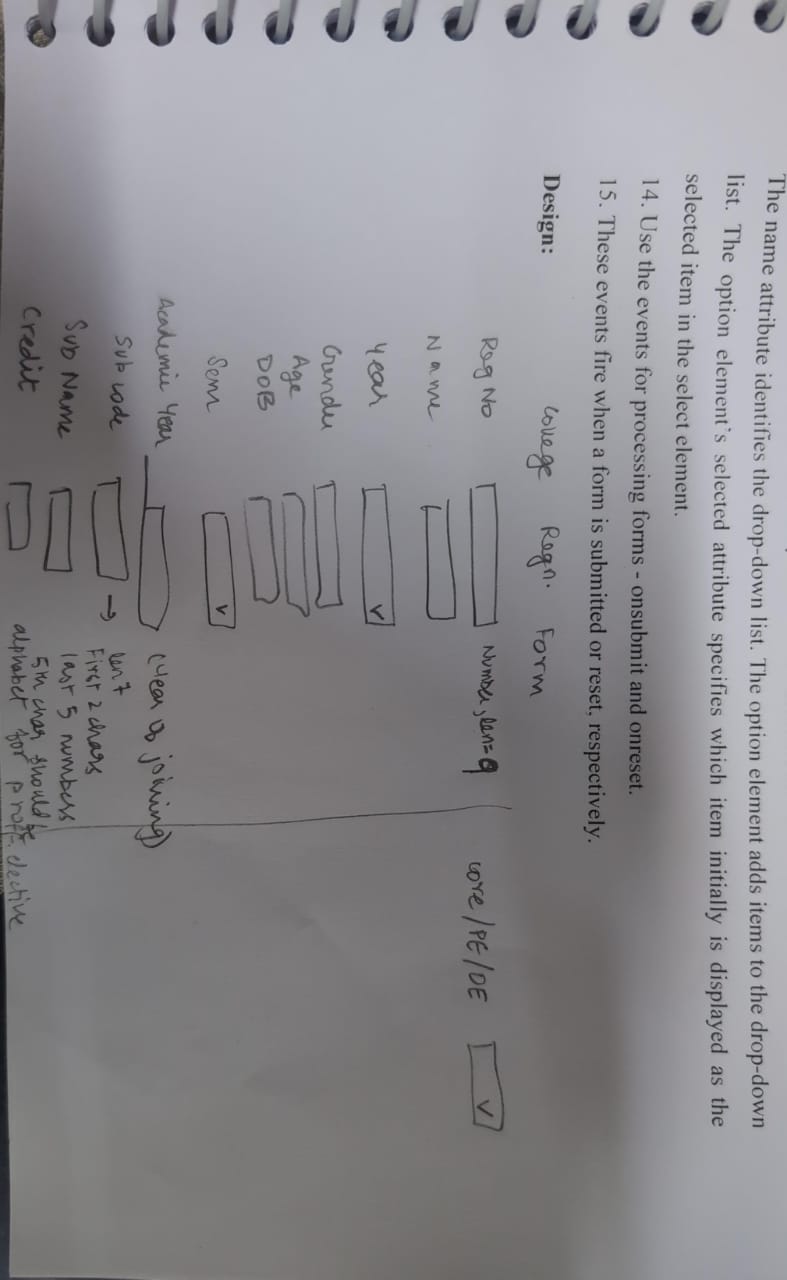 The name attribute identifies the drop-down list. The option element adds items to the drop-down
list. The option element's selected attribute specifies which item initially is displayed as the
selected item in the select element.
14. Use the events for processing forms - onsubmit and onreset.
15. These events fire when a form is submitted or reset, respectively.
Design:
College Regn. Form
Reg No Number, len=9
core/PE/OE
Name
Year
Gender
Age
DOB
Sem
Academic Year (Year of joining)
Sub code → len 7
First 2 chars
Sub Name last 5 numbers
5th char should be
Credit alphabet for proff. elective